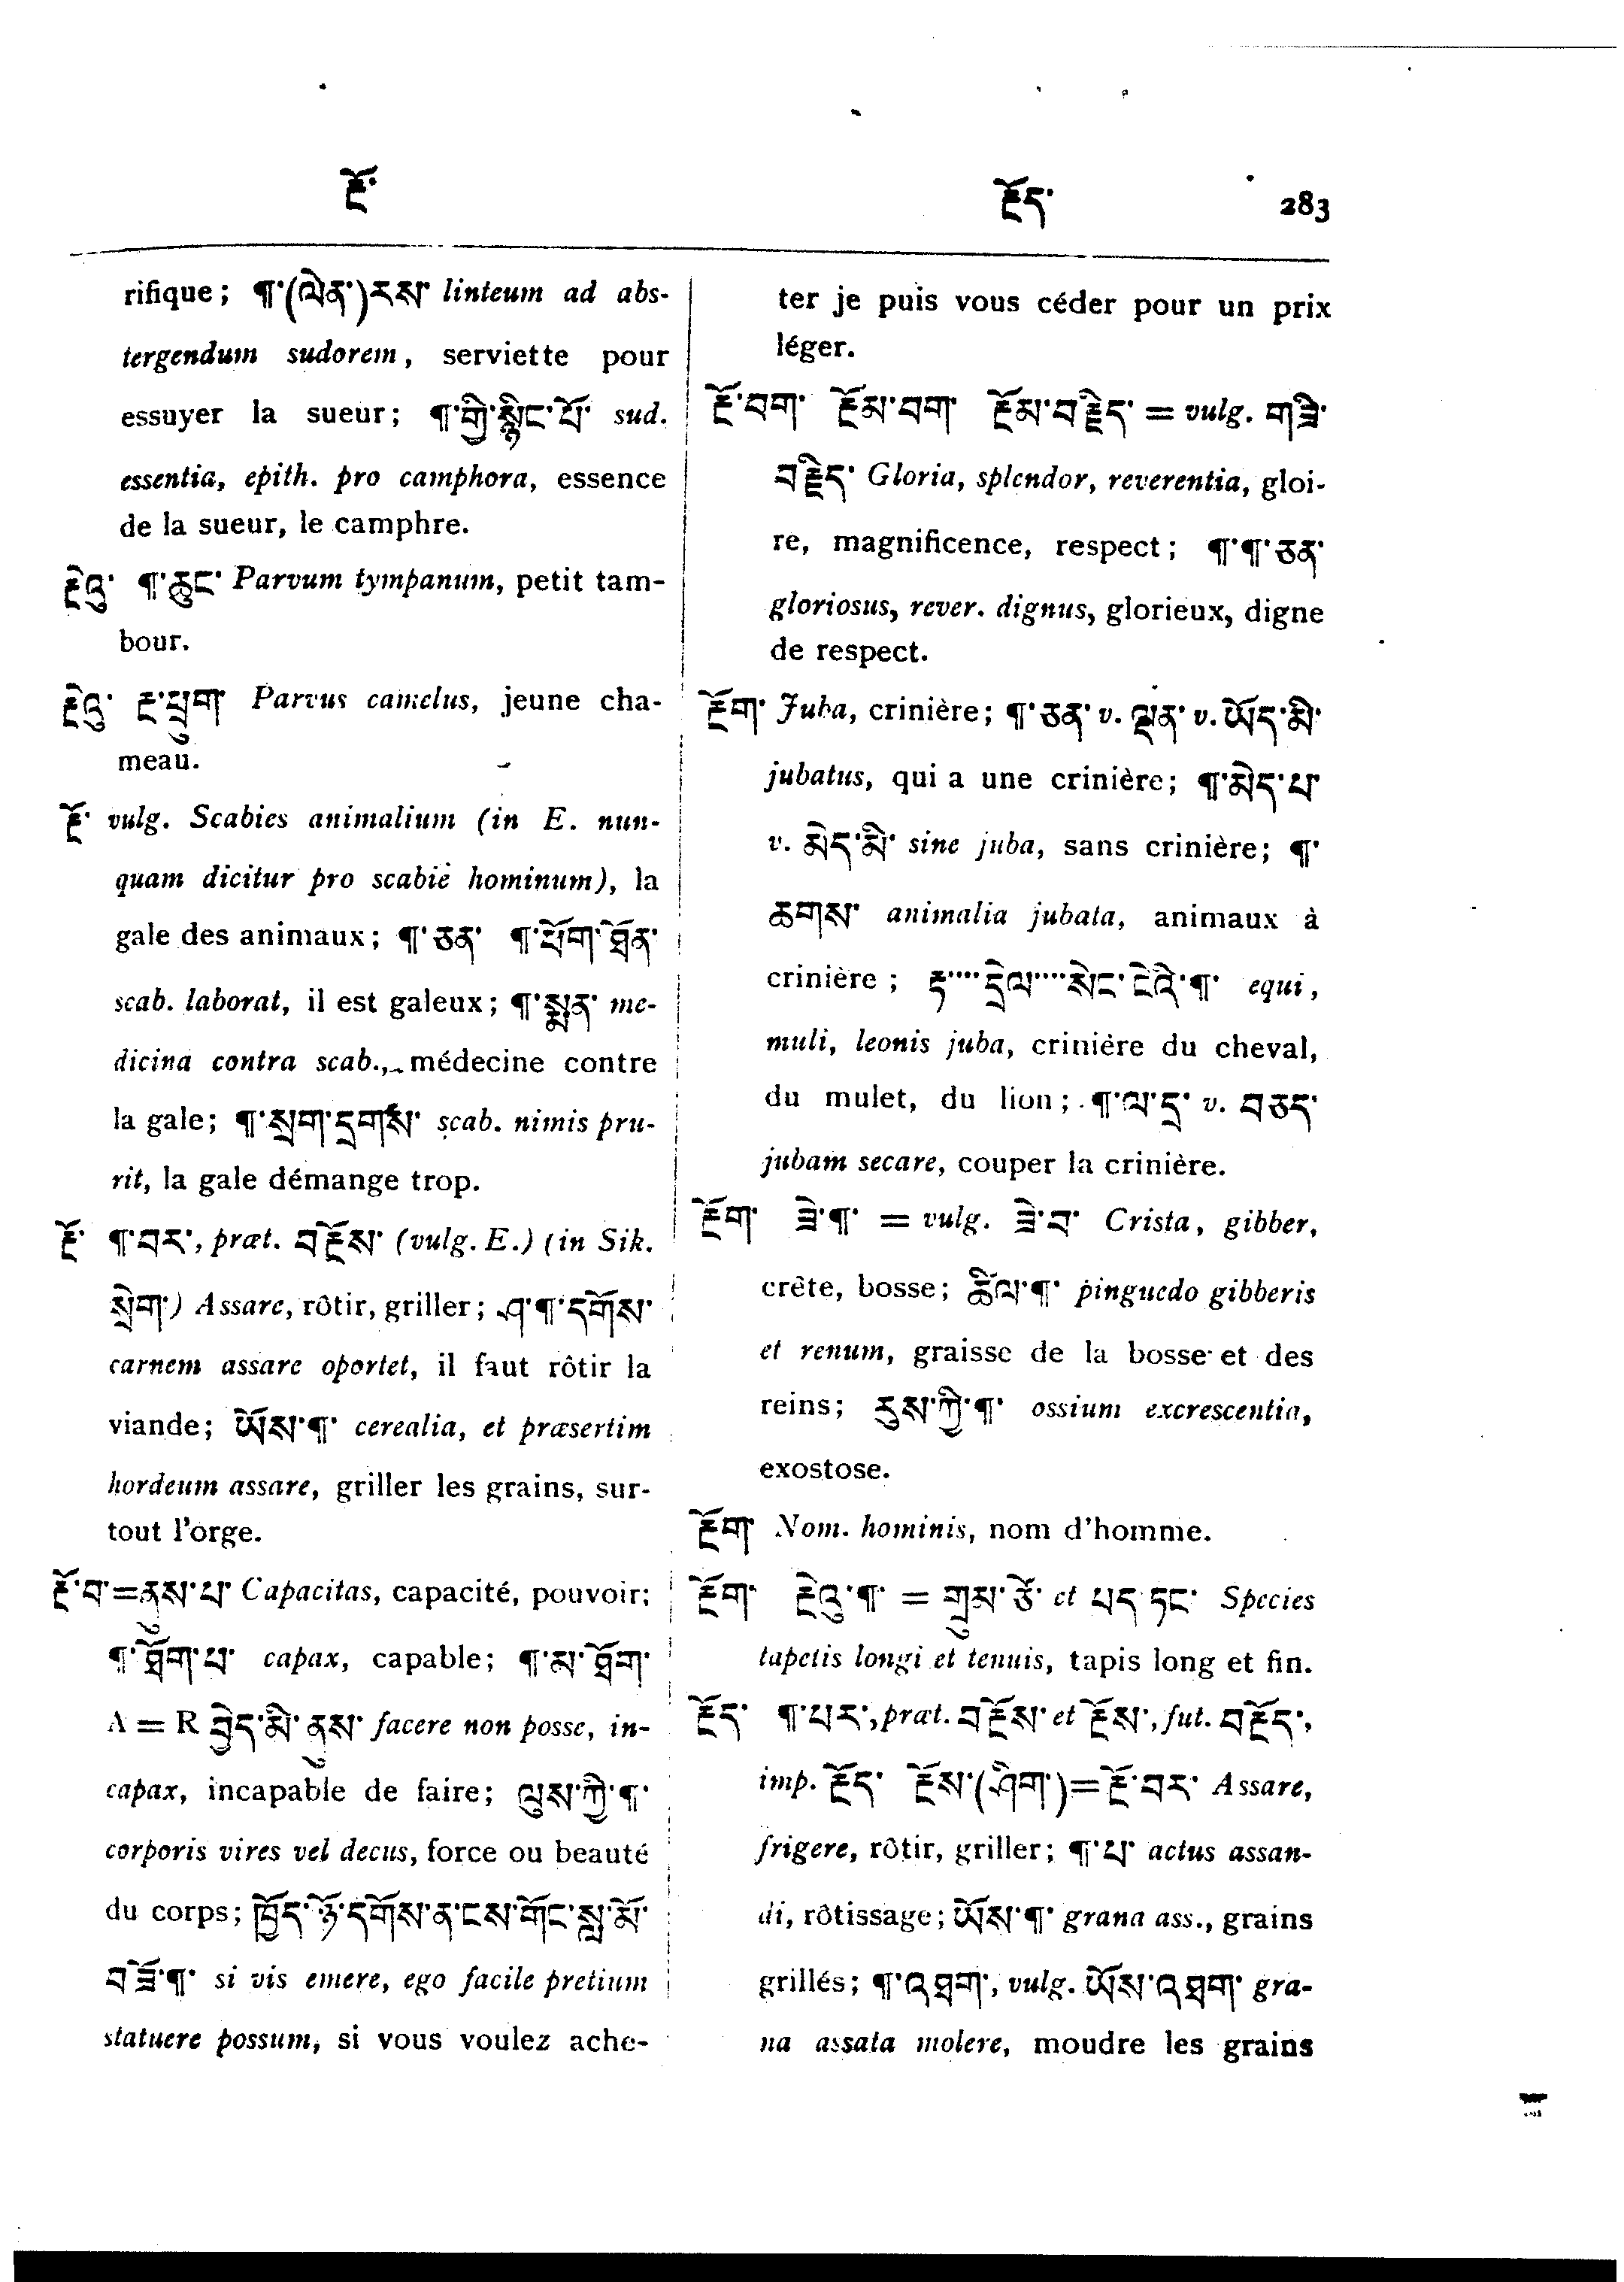 རྔོ་
རྔོད་ 283
rifique; ¶་(ལེན་)རས་ linteum ad abs-
tergendum sudorem, serviette pour
essuyer la sueur; ¶་གྱི་སྙིང་པོ་ sud.
essentia, epith. pro camphora, essence
de la sueur, le camphre.
རྔེའུ་ ¶་ཆུང་ Parvum tympanum, petit tam-
bour.
རྔེའུ་ རྔ་ཕྲུག་ Parvus camelus, jeune cha-
meau.
རྔོ་ vulg. Scabies animalium (in E. nun-
quam dicitur pro scabie hominum), la
gale des animaux; ¶་ཅན་ ¶་ཕོག་ཐོན་
scab. laborat, il est galeux; ¶་སྨན་ me-
dicina contra scab., médecine contre
la gale; ¶་སྲག་དྲགས་ scab. nimis pru-
rit, la gale démange trop.
རྔོ་ ¶་བར་, præt. བརྔོས་ (vulg. E.) (in Sik.
སྲེག་) Assare, rôtir, griller; ཤ་¶་དགོས་
carnem assare oportet, il faut rôtir la
viande; ཡོས་¶་ cerealia, et præsertim
hordeum assare, griller les grains, sur-
tout l'orge.
རྔོ་བ་=ནུས་པ་ Capacitas, capacité, pouvoir;
¶་ཐོག་པ་ capax, capable; ¶་མ་ཐོག་
A = R བྱེད་མི་ནུས་ facere non posse, in-
capax, incapable de faire; ལུས་ཀྱི་¶་
corporis vires vel decus, force ou beauté
du corps; ཁྱོད་ཉོ་དགོས་ན་ངས་གོང་སླ་མོ་
བཟོ་¶་ si vis emere, ego facile pretium
statuere possum, si vous voulez ache-
ter je puis vous céder pour un prix
léger.
རྔོ་བག་ རྔོམ་བག་ རྔོམ་བརྗིད་ = vulg. གཟི་
བརྗིད་ Gloria, splendor, reverentia, gloi-
re, magnificence, respect; ¶་¶་ཅན་
gloriosus, rever. dignus, glorieux, digne
de respect.
རྔོག་ Juba, crinière; ¶་ཅན་ v. ལྡན་ v. ཡོད་མི་
jubatus, qui a une crinière; ¶་མེད་པ་
v. མེད་མི་ sine juba, sans crinière; ¶་
ཆགས་ animalia jubata, animaux à
crinière; རྟ་....དྲེལ་....སེང་ངེའི་¶་ equi,
muli, leonis juba, crinière du cheval,
du mulet, du lion; ¶་ལ་དྲ་ v. བཅད་
jubam secare, couper la crinière.
རྔོག་ ཟེ་¶་ = vulg. ཟེ་བ་ Crista, gibber,
crête, bosse; ཚིལ་¶་ pinguedo gibberis
et renum, graisse de la bosse et des
reins; རུས་ཀྱི་¶་ ossium excrescentia,
exostose.
རྔོག་ Nom. hominis, nom d'homme.
རྔོག་ རྔེའུ་¶་ = གྲུམ་ཙེ་ et པད་ཏང་ Species
tapetis longi et tenuis, tapis long et fin.
རྔོད་ ¶་པར་, præt. བརྔོས་ et རྔོས་, fut. བརྔོད་,
imp. རྔོད་ རྔོས་(ཤིག་)=རྔོ་བར་ Assare,
frigere, rôtir, griller; ¶་པ་ actus assan-
di, rôtissage; ཡོས་¶་ grana ass., grains
grillés; ¶་འཐག་, vulg. ཡོས་འཐག་ gra-
na assata molere, moudre les grains